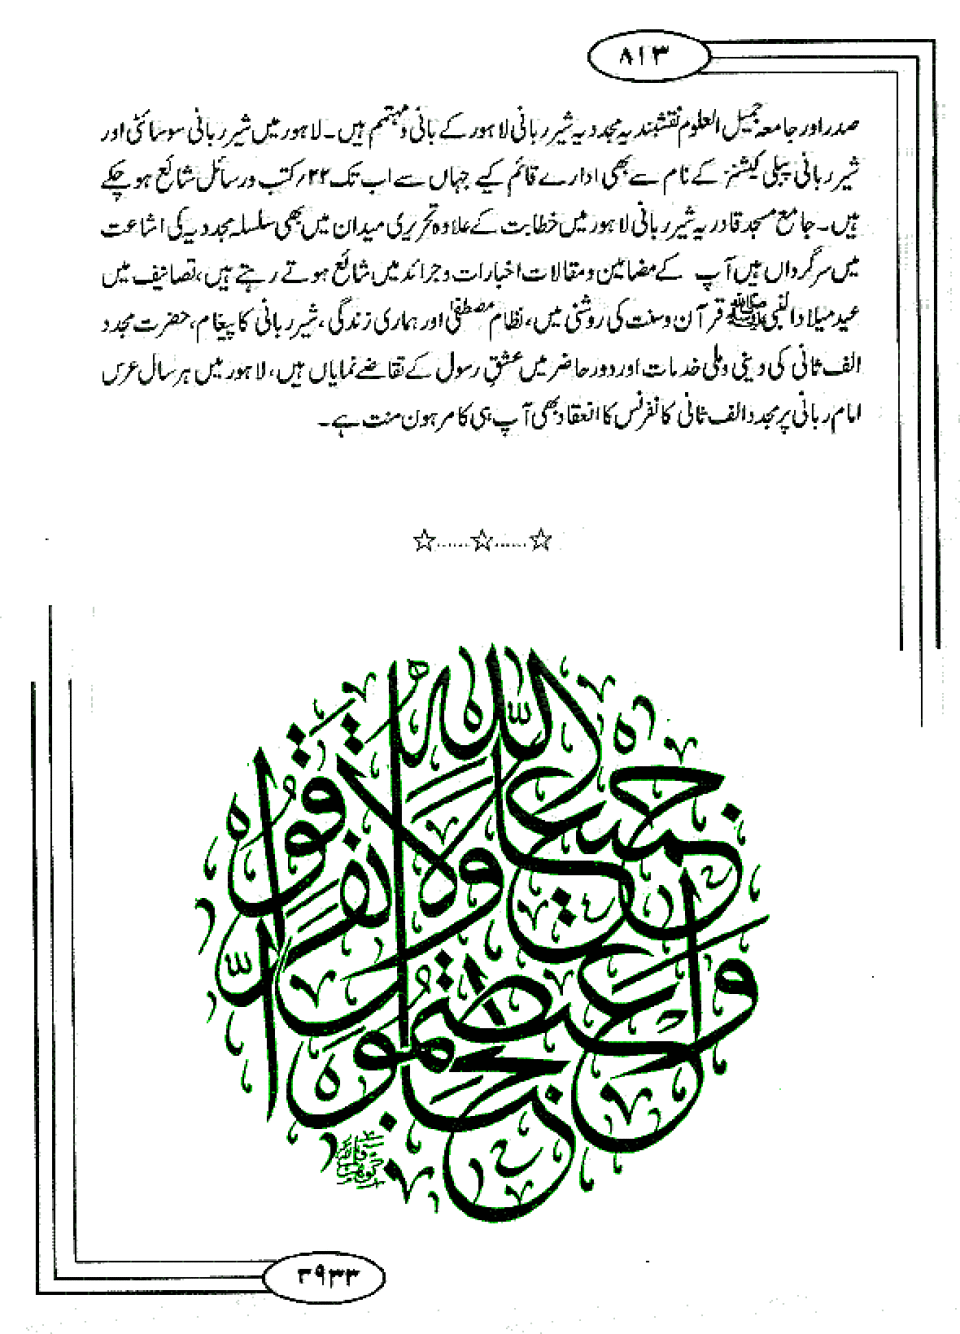 ۸۱۳
صدر اور جامعہ جمیل العلوم نقشبندیہ مجددیہ شیر ربانی لاہور کے بانی و مہتمم ہیں۔ لاہور میں شیر ربانی سوسائٹی اور
شیر ربانی پبلی کیشنز کے نام سے بھی ادارے قائم کیے جہاں سے اب تک ۲۲؍ کتب ورسائل شائع ہو چکے
ہیں۔ جامع مسجد قادریہ شیر ربانی لاہور میں خطابت کے علاوہ تحریری میدان میں بھی سلسلہ مجددیہ کی اشاعت
میں سرگرداں ہیں آپ کے مضامین و مقالات اخبارات و جرائد میں شائع ہوتے رہتے ہیں، تصانیف میں
عید میلاد النبی ﷺ قرآن و سنت کی روشنی میں، نظام مصطفیٰ اور ہماری زندگی، شیر ربانی کا پیغام، حضرت مجدد
الف ثانی کی دینی و ملی خدمات اور دور حاضر میں عشقِ رسول کے تقاضے نمایاں ہیں، لاہور میں ہر سال عرس
امام ربانی پر مجدد الف ثانی کانفرنس کا انعقاد بھی آپ ہی کا مرہون منت ہے۔
☆......☆......☆
واعتصموا بحبل الله جميعا ولا تفرقوا
۳۹۳۳